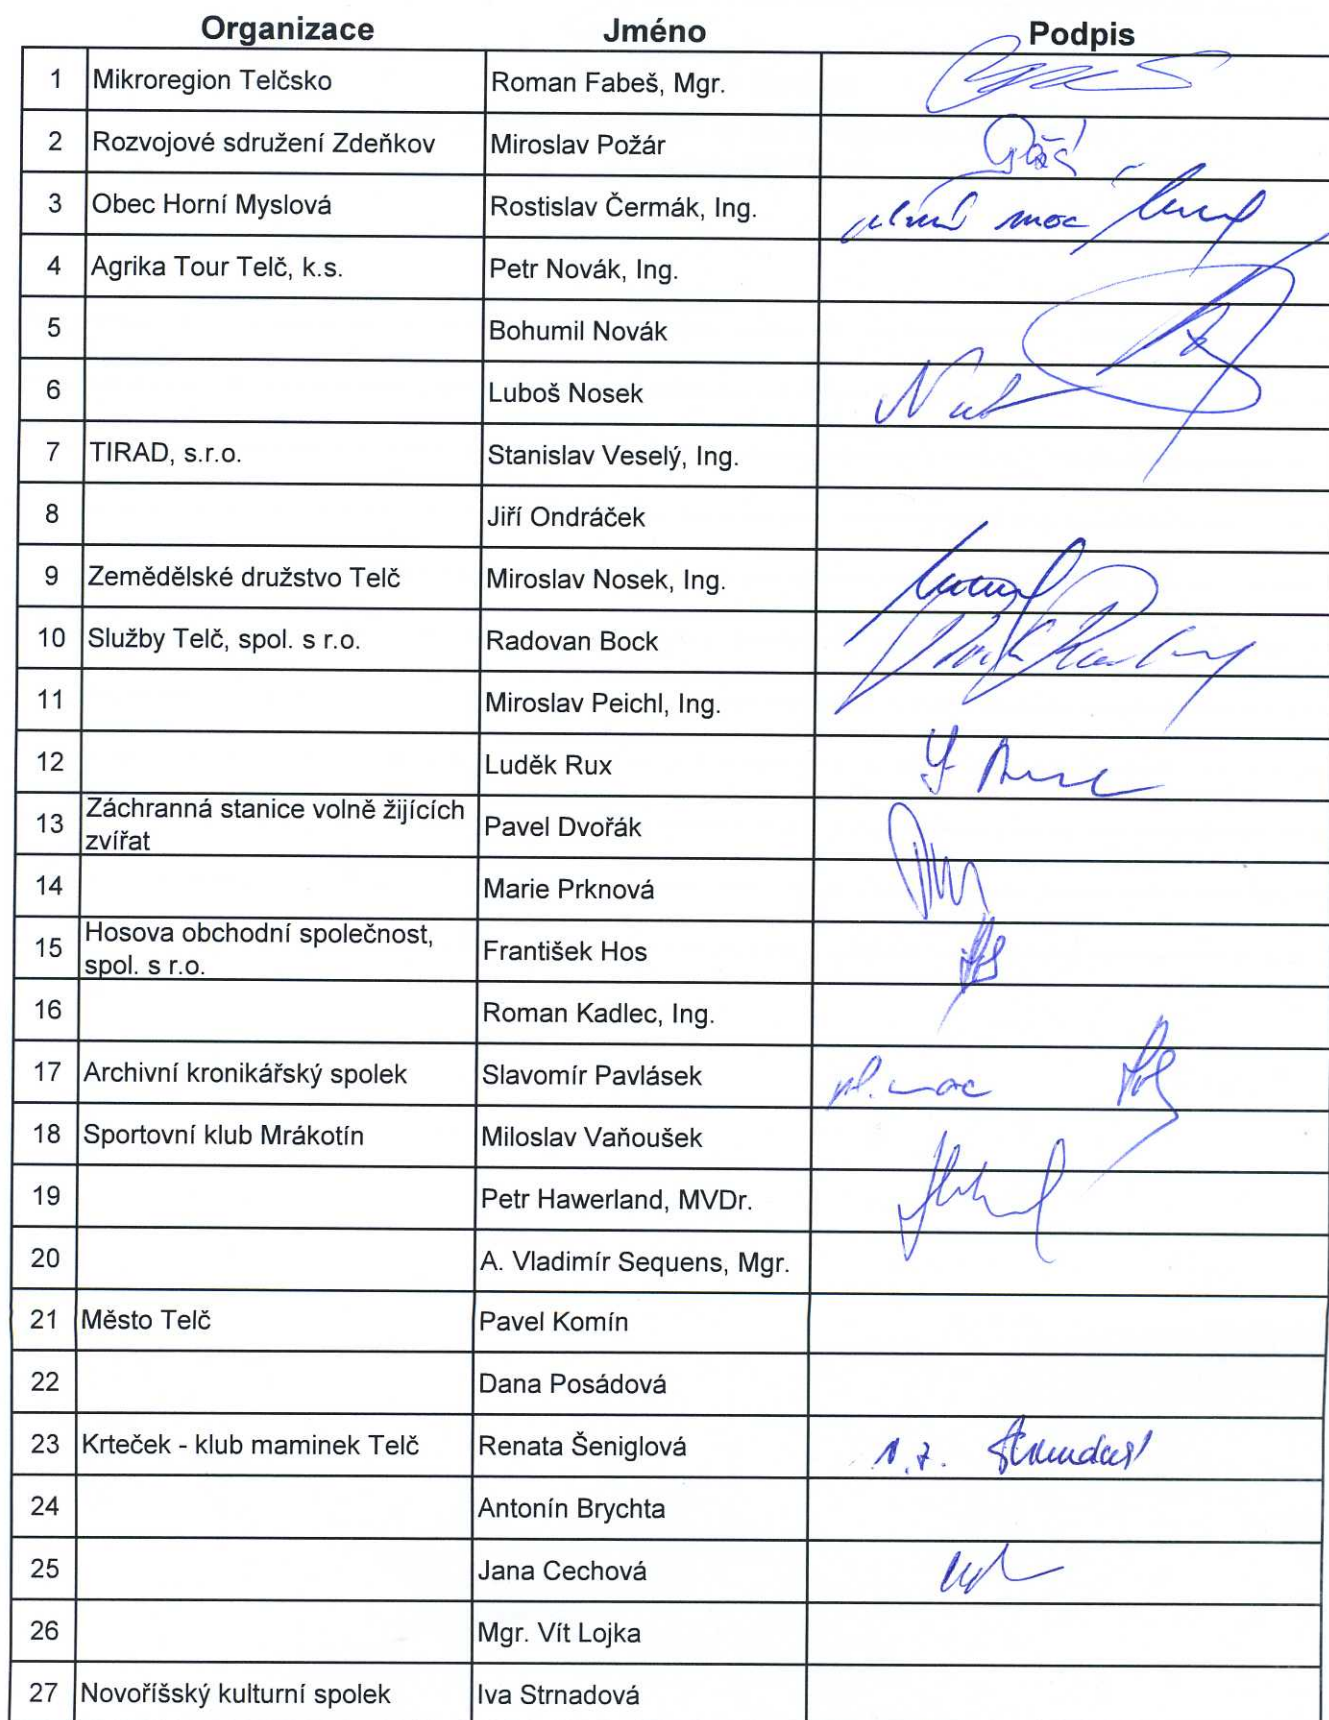 Organizace Jméno Podpis
1 Mikroregion Telčsko Roman Fabeš, Mgr.
2 Rozvojové sdružení Zdeňkov Miroslav Požár
3 Obec Horní Myslová Rostislav Čermák, Ing. plná moc
4 Agrika Tour Telč, k.s. Petr Novák, Ing.
5 Bohumil Novák
6 Luboš Nosek
7 TIRAD, s.r.o. Stanislav Veselý, Ing.
8 Jiří Ondráček
9 Zemědělské družstvo Telč Miroslav Nosek, Ing.
10 Služby Telč, spol. s r.o. Radovan Bock
11 Miroslav Peichl, Ing.
12 Luděk Rux
13 Záchranná stanice volně žijících Pavel Dvořák
zvířat
14 Marie Prknová
15 Hosova obchodní společnost, František Hos
spol. s r.o.
16 Roman Kadlec, Ing.
17 Archivní kronikářský spolek Slavomír Pavlásek pl. moc
18 Sportovní klub Mrákotín Miloslav Vaňoušek
19 Petr Hawerland, MVDr.
20 A. Vladimír Sequens, Mgr.
21 Město Telč Pavel Komín
22 Dana Posádová
23 Krteček - klub maminek Telč Renata Šeniglová
24 Antonín Brychta
25 Jana Cechová
26 Mgr. Vít Lojka
27 Novoříšský kulturní spolek Iva Strnadová